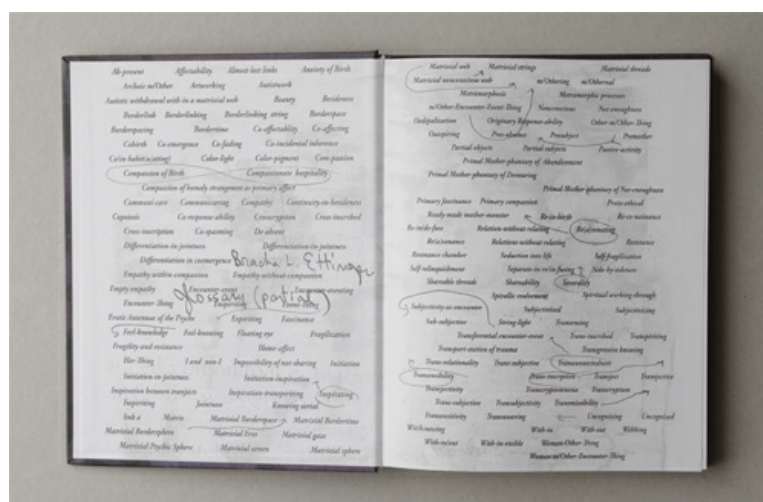 Ab-present Affectability Almost-lost links Anxiety of Birth
Archaic m/Other Artworking Autistwork
Autistic withdrawal with-in a matrixial web Beauty Besideness
Borderlink Borderlinking Borderlinking string Borderspace
Borderspacing Bordertime Co-affectability Co-affecting
Cobirth Co-emergence Co-fading Co-incidental inherence
Co/in-habit(u)a(ting) Color-light Color-pigment Com-passion
Compassion of Birth Compassionate hospitality
Compassion of homely strangeness as primary affect
Communi-care Communicaring Compathy Continuity-in-besideness
Copoiesis Co-response-ability Crosscryption Cross-inscribed
Cross-inscription Co-spasming De-absent
Differentiation-in-jointness Differenciation-in-jointness
Differentiation in coemergence Bracha L. Ettinger
Empathy within compassion Empathy without compassion
Empty empathy Encounter-event Encounter-eventing
glossary (partial)
Encounter-Thing Event-Thing
Erotic Antennae of the Psyche Expiriting Fascinance
Feel-knowledge Feel-knowing Floating eye Fragilization
Fragility and resistance Home-affect
Her-Thing I and non-I Impossibility of not sharing Initiation
Initiation-in-jointness Initiation-inspiration
Inspiration between transject Inspiration-transpiriting Inspiriting
Inspiriting Jointness
link a Matrix Matrixial Borderspace Matrixial Bordertime
Matrixial Bordersphere Matrixial Eros Matrixial gaze
Matrixial Psychic Sphere Matrixial screen Matrixial sphere
Matrixial web Matrixial strings Matrixial threads
Matrixial nonconscious web m/Othering m/Othernal
Metramorphosis Metramorphic processes
m/Other-Encounter-Event-Thing Nonconscious Not-enoughness
Oedipalisation Originary Response-ability Other-m/Other-Thing
Outspiring Pres-absence Presubject Premother
Partial-objects Partial-subjects Passive-activity
Primal Mother-phantasy of Abandonment
Primal Mother-phantasy of Devouring
Primal Mother-phantasy of Not-enoughness
Primary fascinance Primary compassion Proto-ethical
Ready-made mother-monster Re-in-birth Re-co-naissance
Re-in/di-fuse Relation-without-relating Re(a)sonating
Re(a)sonance Relations-without-relating Resistance
Resonance chamber Seduction into life Self-fragilisation
Self-relinquishment Separate-in-co/in-fusing Side-by-sideness
Shareable threads Shareability Severality
Spiralic enstlement Spiritual working-through
Subjectivity-as-encounter Subjectivized Subjectivizing
Sub-subjective String-light Transensing
Transferential encounter-event Trans-inscribed Transpiriting
Transport-station of trauma Transgressive knowing
Trans-relationality Trans-subjective Transconnectedness
Transmobility Trans-inscription Transject Transjective
Transjectivity Transcryptomnesia Transcryptum
Trans-subjective Transsubjectivity Transmissibility
Transsensitivity Transwearing Uncognizing Uncognized
With-nessing With-in With-out Withbing
With-in/out With-in-visible Woman-Other-Thing
Woman-m/Other-Encounter-Thing